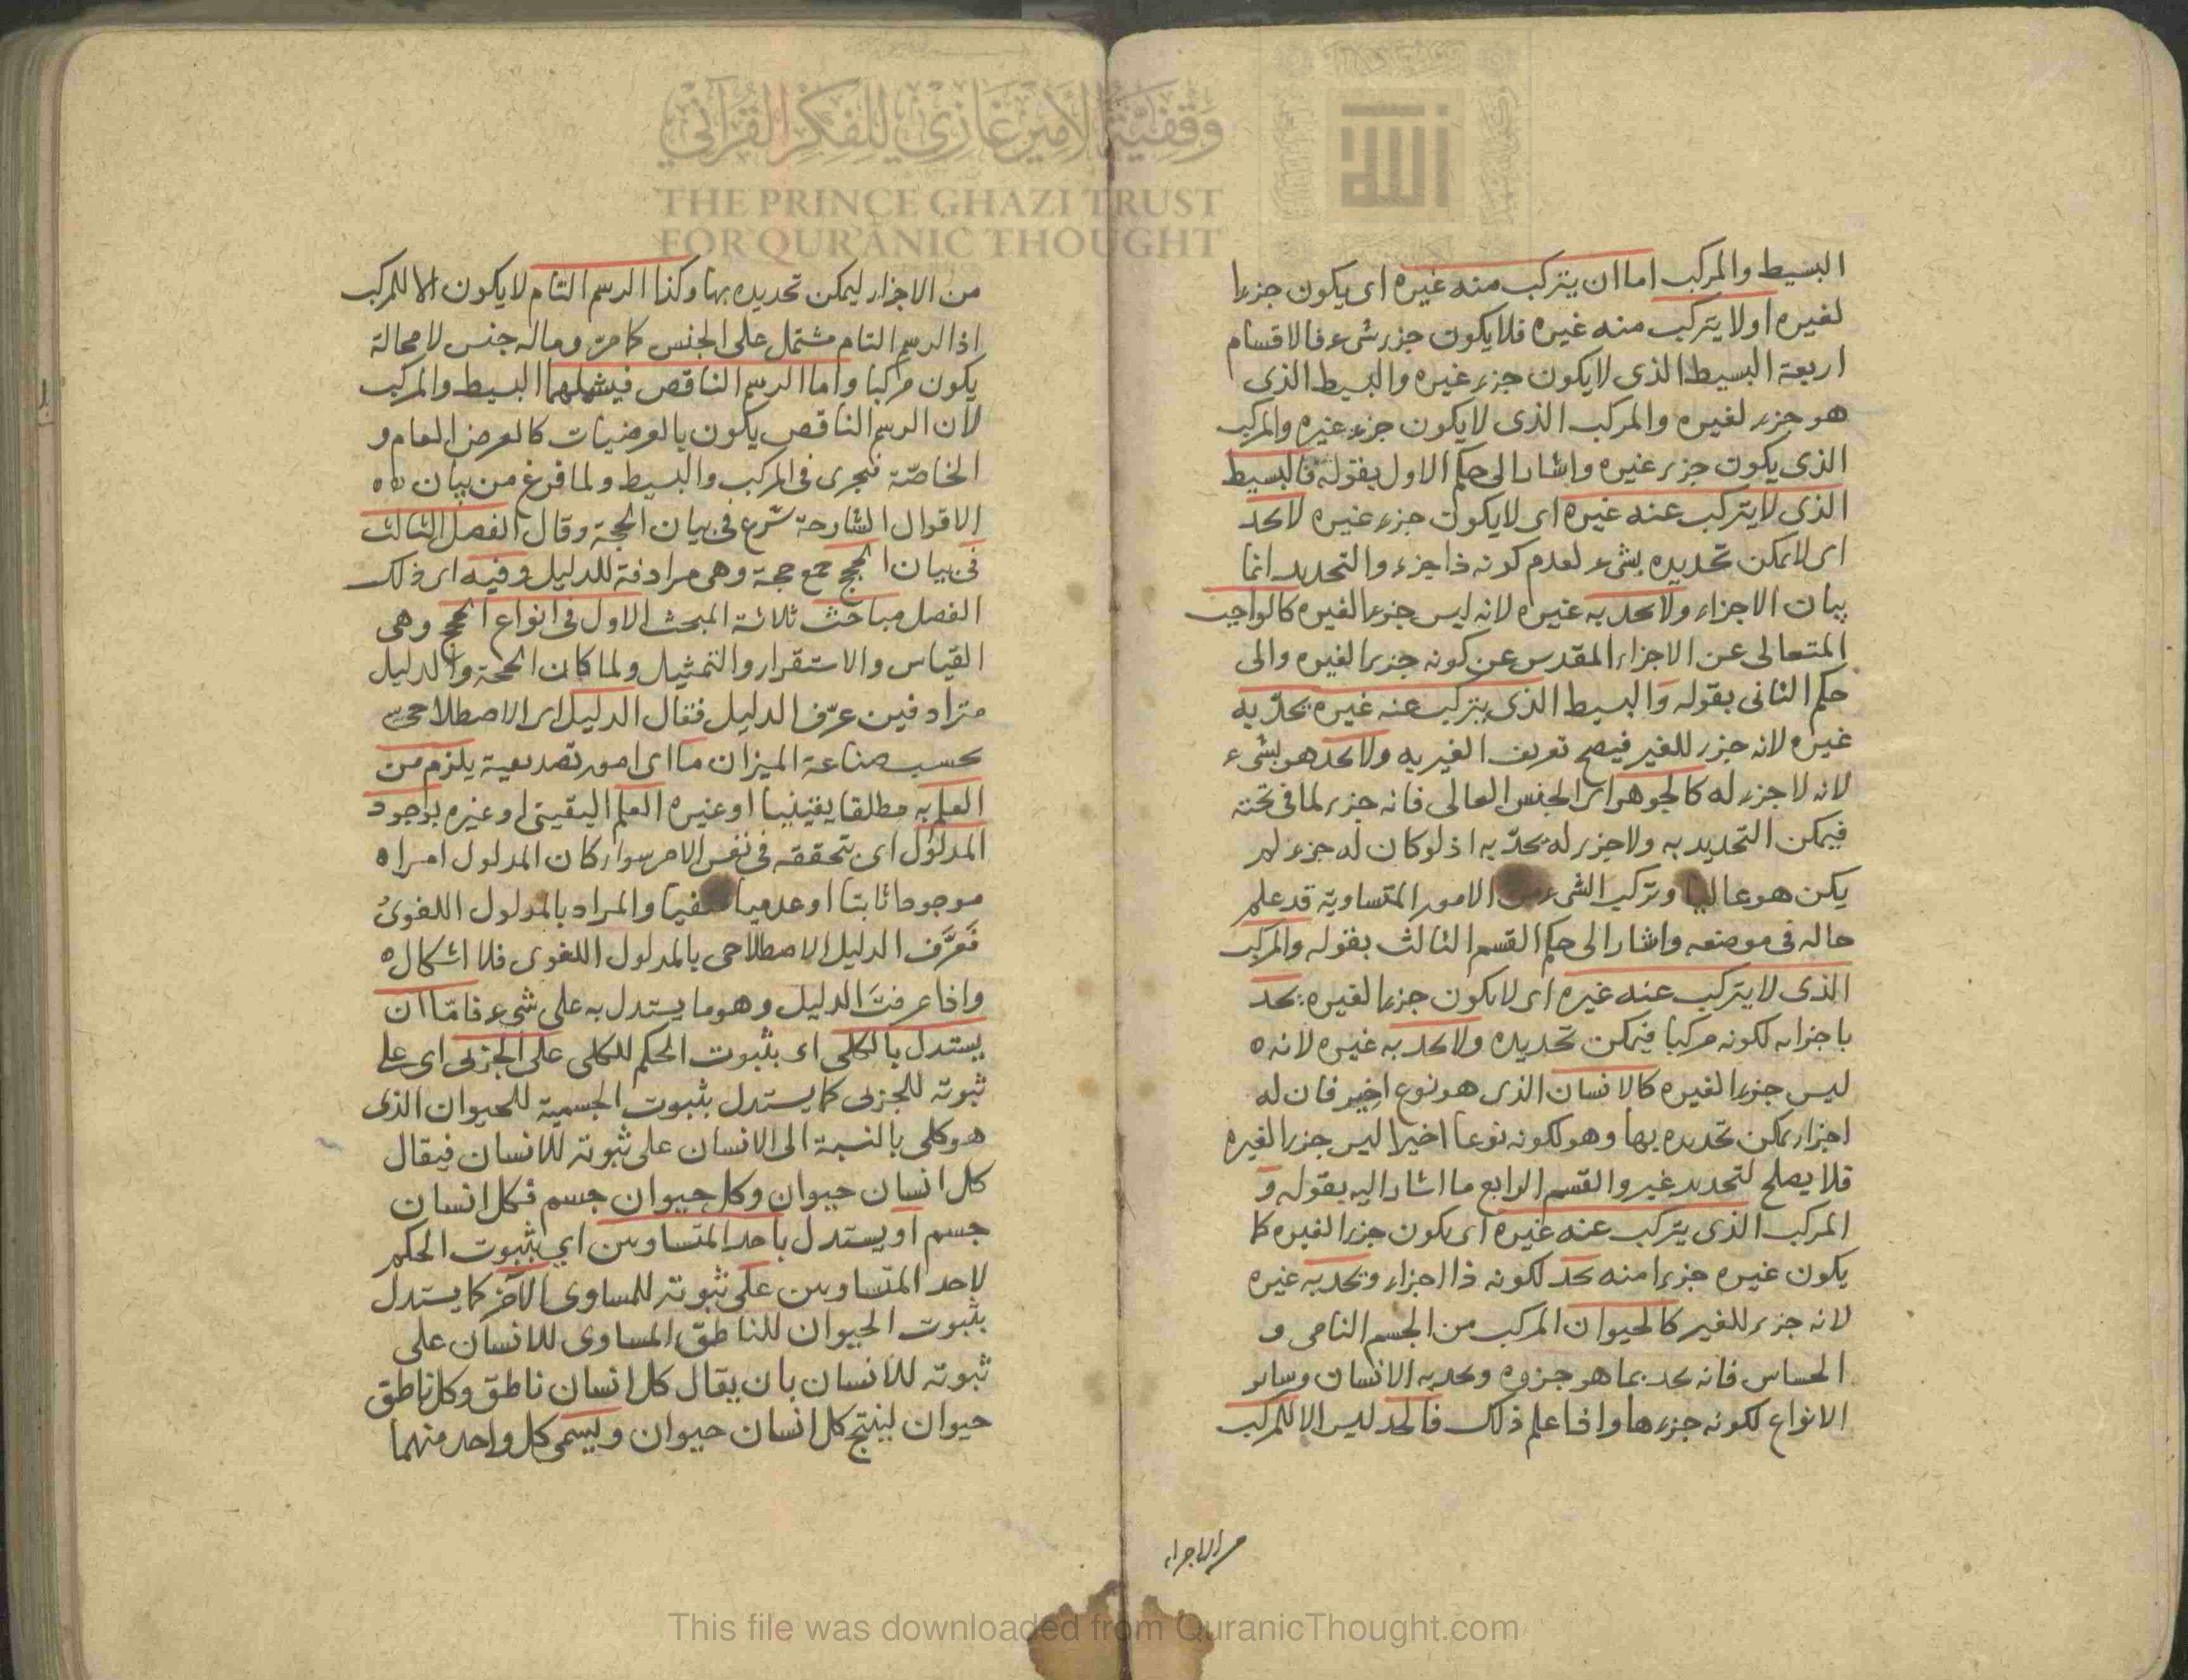 البسيط والمركب اما ان يتركب منه غيره اى يكون جزءا
لغيره او لا يتركب منه غيره فلا يكون جزء شىء فالاقسام
اربعة البسيط الذى لا يكون جزء غيره والبسيط الذى
هو جزء لغيره والمركب الذى لا يكون جزء غيره والمركب
الذى يكون جزء غيره واشار الى حكم الاول بقوله فالبسيط
الذى لا يتركب عنه غيره اى لا يكون جزء غيره لا يحد
اى لا يمكن تحديده بشىء لعدم كونه ذا جزء والتحديد انما
بيان الاجزاء ولا يحد به غيره لانه ليس جزءا لغيره كالواجب
المتعالى عن الاجزاء المقدس عن كونه جزءا لغيره والى
حكم الثانى بقوله والبسيط الذى يتركب عنه غيره يحد به
غيره لانه جزء للغير فيصح تعريف الغير به ولا يحد هو بشىء
لانه لا جزء له كالجوهر اى الجنس العالى فانه جزء لما فى تحته
فيمكن التحديد به ولا جزء له يحد به اذ لو كان له جزء لم
يكن هو عاليا وتركب الشىء من الامور المتساوية قد علم
حاله فى موضعه واشار الى حكم القسم الثالث بقوله والمركب
الذى لا يتركب عنه غيره اى لا يكون جزءا لغيره يحد
باجزائه لكونه مركبا فيمكن تحديده ولا يحد به غيره لانه
ليس جزءا لغيره كالانسان الذى هو نوع اخير فان له
اجزاء يمكن تحديده بها وهو لكونه نوعا اخيرا ليس جزءا لغيره
فلا يصلح لتحديد غير والقسم الرابع ما اشار اليه بقوله و
المركب الذى يتركب عنه غيره اى يكون جزءا لغيره كا
يكون غيره جزءا منه يحد لكونه ذا اجزاء ويحد به غيره
لانه جزء للغير كالحيوان المركب من الجسم النامى و
الحساس فانه يحد بما هو جزوه ويحد به الانسان وسائر
الانواع لكونه جزءها واذا علم ذلك فالحد ليس الا للمركب
من الاجزاء
من الاجزاء ليمكن تحديده بها وكذا الرسم التام لا يكون الا للمركب
اذ الرسم التام مشتمل على الجنس كما مر وماله جنس لا محالة
يكون مركبا واما الرسم الناقص فيشملهما البسيط والمركب
لان الرسم الناقص يكون بالعرضيات كالعرض العام و
الخاصة فيجرى فى المركب والبسيط ولما فرغ من بيان
الاقوال الشارحة شرع فى بيان الحجة وقال الفصل الثالث
فى بيان الحجج جمع حجة وهى مرادفة للدليل وفيه اى ذلك
الفصل مباحث ثلاثة المبحث الاول فى انواع الحجج وهى
القياس والاستقراء والتمثيل ولما كان الحجة والدليل
مترادفين عرّف الدليل فقال الدليل اى الاصطلاحى
بحسب صناعة الميزان ما اى امور تصديقية يلزم من
العلم به مطلقا يقينيا او غيره العلم اليقينى او غيره بوجود
المدلول اى تحققه فى نفس الامر سواء كان المدلول امرا
موجودا ثابتا او عدميا منفيا والمراد بالمدلول اللغوى
فَعَرَّف الدليل الاصطلاحى بالمدلول اللغوى فلا اشكال
واذا عرفتَ الدليل وهو ما يستدل به على شىء فامّا ان
يستدل بالكلى اى بثبوت الحكم للكلى على الجزئى اى على
ثبوته للجزئى كما يستدل بثبوت الجسمية للحيوان الذى
هو كلى بالنسبة الى الانسان على ثبوته للانسان فيقال
كل انسان حيوان وكل حيوان جسم فكل انسان
جسم او يستدل باحد المتساويين اي بثبوت الحكم
لاحد المتساويين على ثبوته للمساوى الآخر كما يستدل
بثبوت الحيوان للناطق المساوى للانسان على
ثبوته للانسان بان يقال كل انسان ناطق وكل ناطق
حيوان لينتج كل انسان حيوان ويسمى كل واحد منهما
وقفية الأمير غازي للفكر القرآني
THE PRINCE GHAZI TRUST
FOR QUR'ANIC THOUGHT
الله
This file was downloaded from QuranicThought.com